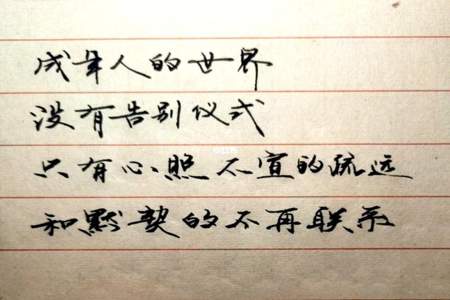 成年人的世界
没有告别仪式
只有心照不宣的疏远
和默契的不再联系